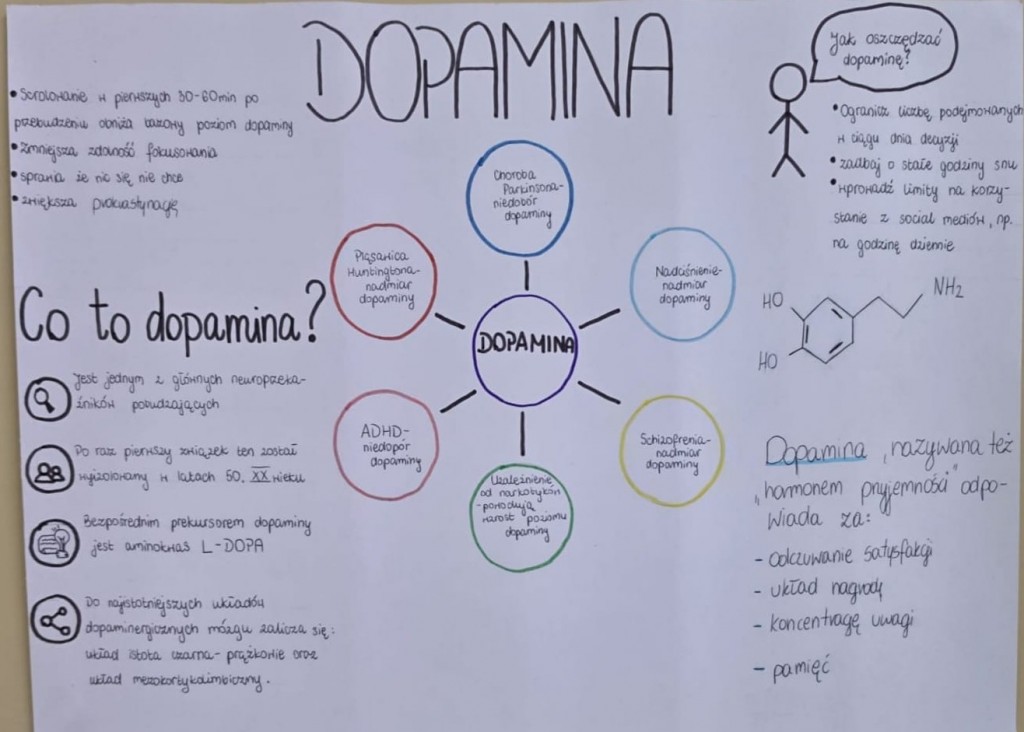 DOPAMINA
• Scrolowanie w pierwszych 30-60min po
przebudzeniu obniża bazowy poziom dopaminy
• Zmniejsza zdolność fokusowania
• sprawia że nic się nie chce
• zwiększa prokrastynację
Jak oszczędzać
dopaminę?
• Ogranicz liczbę podejmowanych
w ciągu dnia decyzji
• zadbaj o stałe godziny snu
• wprowadź limity na korzy-
stanie z social mediów, np.
na godzinę dziennie
Choroba
Parkinsona-
niedobór
dopaminy
Pląsawica
Huntingtona-
nadmiar
dopaminy
Nadciśnienie-
nadmiar
dopaminy
DOPAMINA
ADHD-
niedopór
dopaminy
Schizofrenia-
nadmiar
dopaminy
Uzależnienie
od narkotyków
-powodują
wzrost poziomu
dopaminy
Co to dopamina?
Jest jednym z głównych neuroprzeka-
źników pobudzających
Po raz pierwszy związek ten został
wyizolowany w latach 50. XX wieku
Bezpośrednim prekursorem dopaminy
jest aminokwas L-DOPA
Do najistotniejszych układów
dopaminergicznych mózgu zalicza się:
układ istota czarna- prążkowie oraz
układ mezokortykolimbiczny.
HO
NH2
HO
Dopamina, nazywana też
"hormonem pryjemności" odpo-
wiada za:
- odczuwanie satysfakcji
- układ nagrody
- koncentrację uwagi
- pamięć